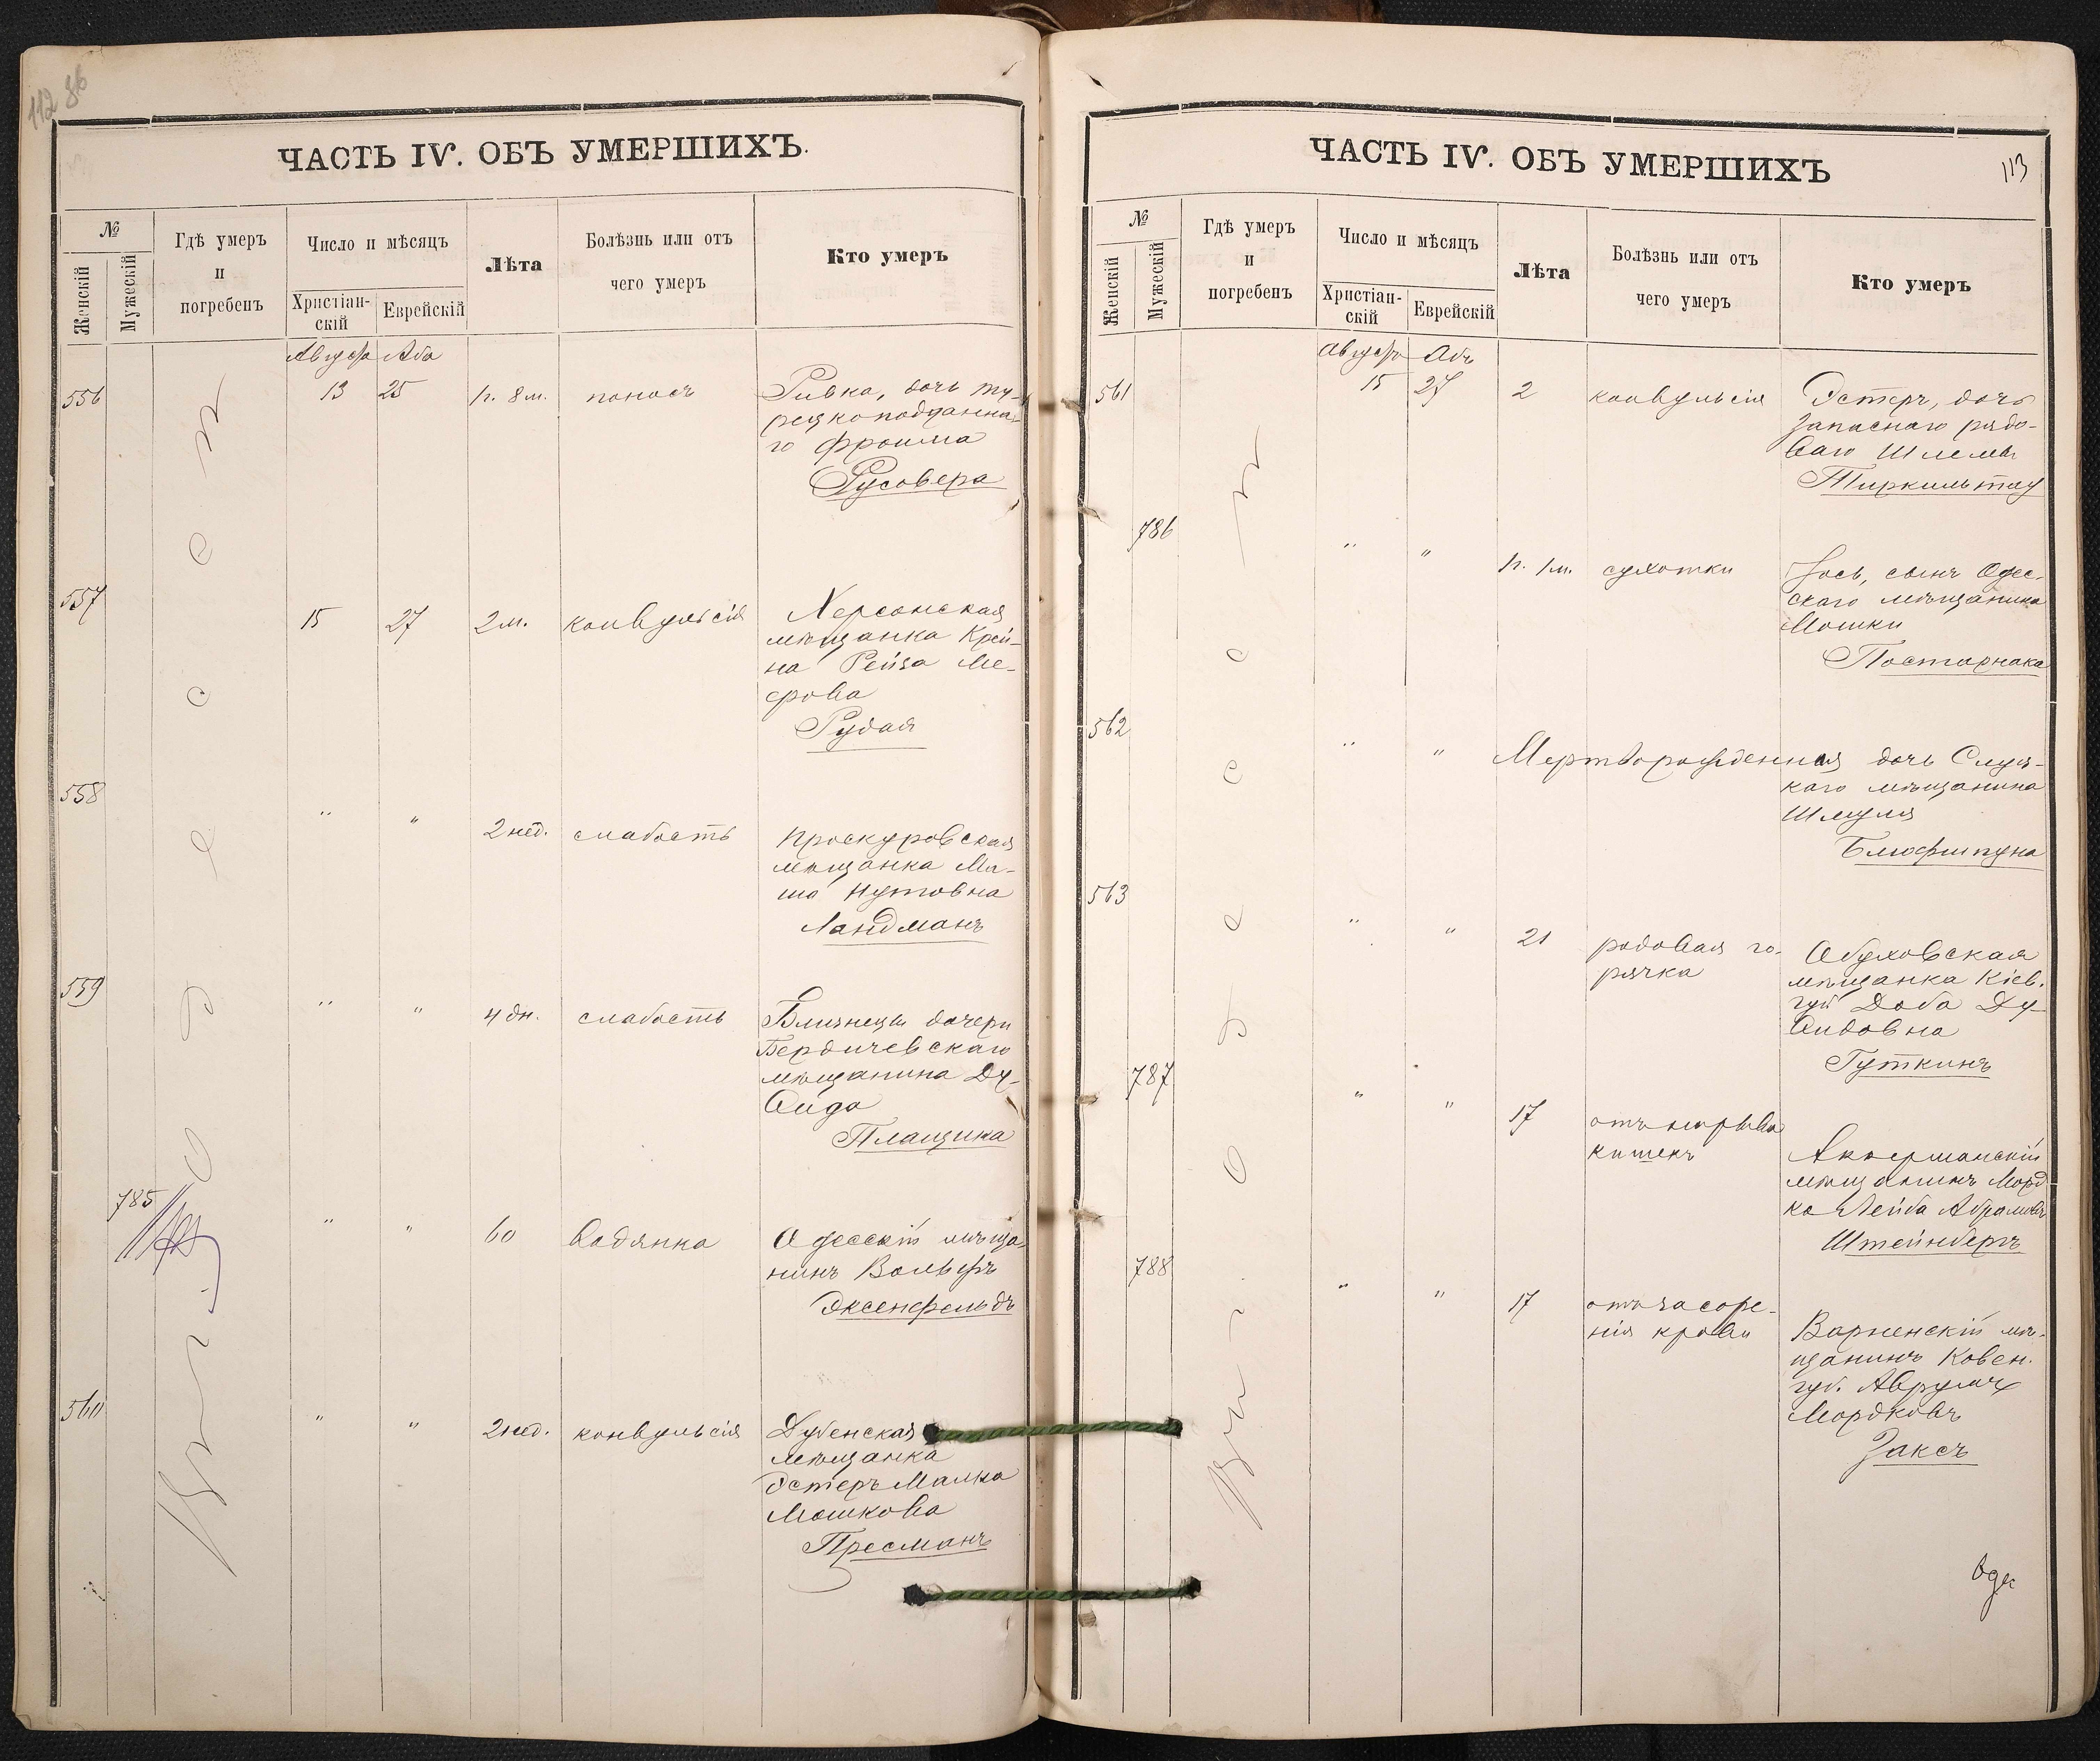 112 86
ЧАСТЬ IV. ОБЪ УМЕРШИХЪ.
№
Женскій
Мужескій
Гдѣ умеръ
и
погребенъ
Число и мѣсяцъ
Христіан-
скій
Еврейскій
Лѣта
Болѣзнь или отъ
чего умеръ
Кто умеръ
Августа Аба
556 13 25 1г. 8м. поносъ Ривка, дочь ту-
рецкоподданна-
го Фроима
Русовера
557 15 27 2м. конвульсія Херсонская
мѣщанка Крей-
на Рейза Ме-
ерова
Рудая
558 " " 2 нед. слабость Проскуровская
мѣщанка Ма-
ша Нутовна
Ландманъ
559 " " 4 дн. слабость Близнецы дочери
Бердичевскаго
мѣщанина Ду-
вида
Плащика
785 " " 60 водянка Одесскій мѣща-
нинъ Вольфъ
Эксенфельдъ
560 " " 2 нед. конвульсія Дубенская
мѣщанка
Эстеръ Малка
Мошкова
Пресманъ
въ г. Одессѣ
ЧАСТЬ IV. ОБЪ УМЕРШИХЪ
113
№
Женскій
Мужескій
Гдѣ умеръ
и
погребенъ
Число и мѣсяцъ
Христіан-
скій
Еврейскій
Лѣта
Болѣзнь или отъ
чего умеръ
Кто умеръ
Августъ Абъ
561 15 27 2 конвульсія Эстеръ, дочь
запаснаго рядо-
ваго Шлемы
Тиркильтауб
786 " " 1г. 1м. сухотки Іось, сынъ Одес-
скаго мѣщанина
Мошки
Постарнака
562 " " Мертворожденная дочь Слуц-
каго мѣщанина
Шмуля
563 " " 21 родовая го-
рячка Обуховская
мѣщанка Кіев.
губ Доба Ду-
видовна
Гуткинъ
787 " " 17 отъ нарыва
кишекъ Аккерманскій
мѣщанинъ Морд
ко Лейба Абрамовъ
Штейнбергъ
788 " " 17 отъ засоре-
нія крови Варненскій мѣ-
щанинъ Ковен.
губ. Аврумъ
Мордковъ
Заксъ
въ г. Одессѣ